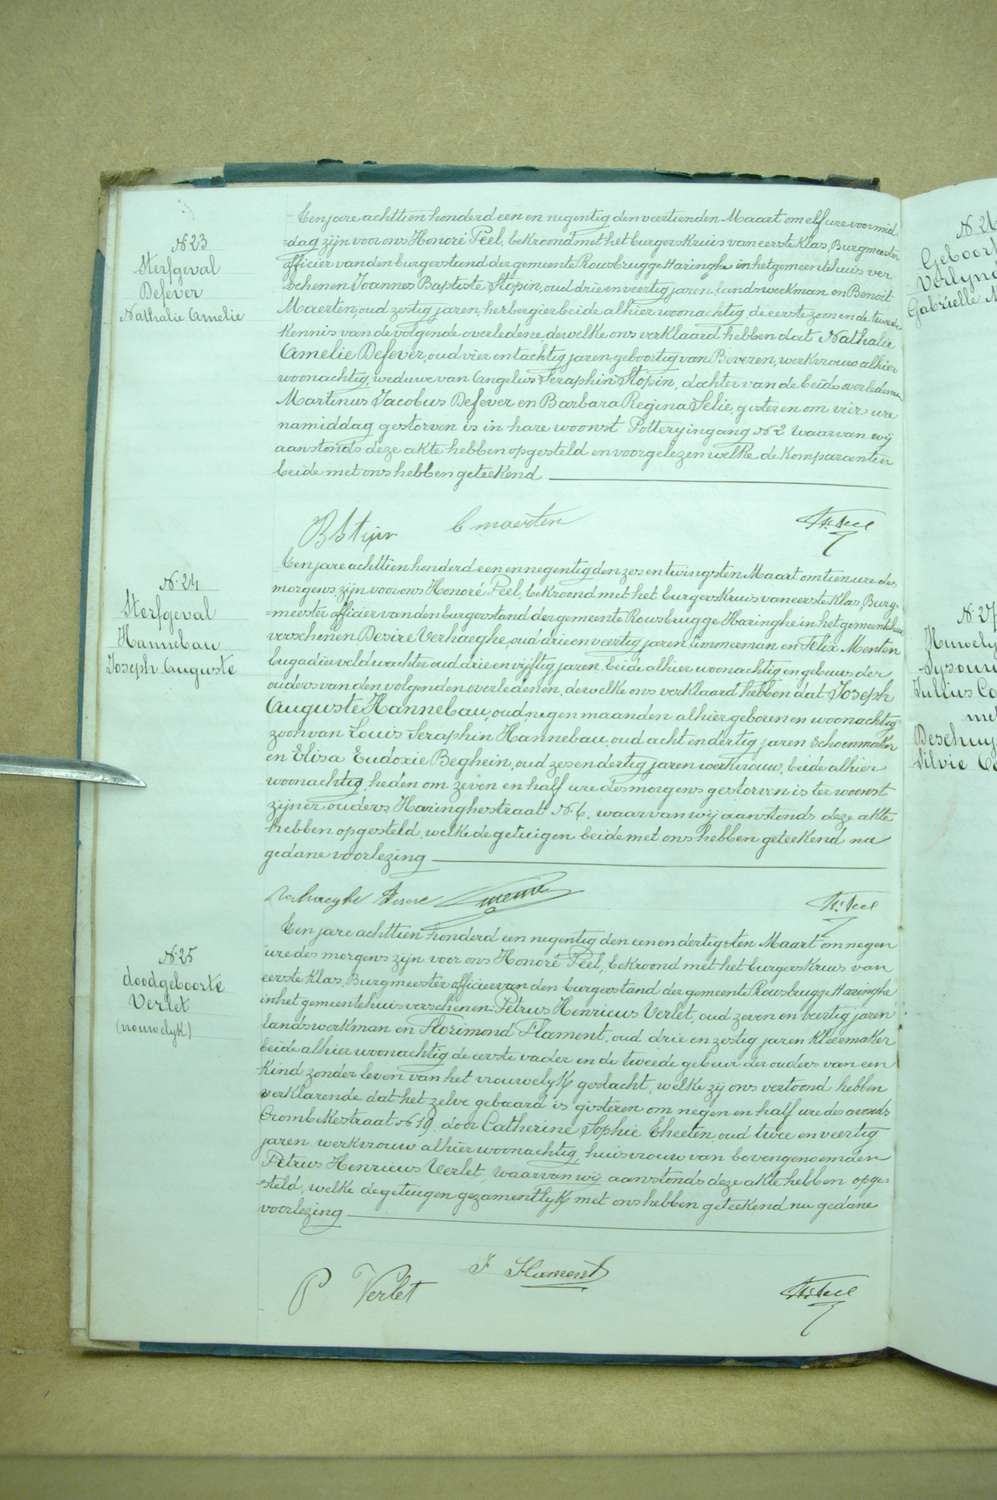 N. 23
Sterfgeval
Defever
Nathalie Amelie
Een jare achttien honderd een en negentig den veertienden Maart om elf ure voormid
=dag zijn voor ons Honoré Peel, bekroond met het burgerskruis van eerste klas, Burgmeester
officier van den burgerstand der gemeente Rousbrugge Haringhe in het gemeentehuis ver
schenen Joannes Baptiste Stopin, oud drie en veertig jaren, landswerkman en Benoit
Maerten, oud zestig jaren, herbergier beide alhier woonachtig de eerste zoon en de tweede
kennis van de volgende overledene dewelke ons verklaard hebben dat Nathalie
Amelie Defever, oud vier en tachtig jaren, geboortig van Beveren, werkvrouw alhier
woonachtig, weduwe van Angelus Seraphin Stopin, dochter van de beide overledenen
Martinus Jacobus Defever en Barbara Regina Selie, gisteren om vier ure
namiddag gestorven is in hare woonst Potteryingang N. 2 waarvan wij
aanstonds deze akte hebben opgesteld en voorgelezen welke de komparanten
beide met ons hebben geteekend
B Stopin B maerten H. Peel
N. 24
Sterfgeval
Hannebau
Joseph Auguste
Een jare achttien honderd een en negentig den zes en twingsten Maart om tien ure des
morgens zijn voor ons Honoré Peel, bekroond met het burgerskruis van eerste klas, Burg=
=meester officier van den burgerstand der gemeente Rousbrugge Haringhe in het gemeentehuis
verschenen Desire Verhaeghe, oud drie en veertig jaren, timmerman en Felix Menten
brigadier veldwachter oud drie en vijftig jaren, beide alhier woonachtig en gebuers der
ouders van den volgenden overledenen, dewelke ons verklaard hebben dat Joseph
Auguste Hannebau, oud negen maanden alhier geboren en woonachtig
zoon van Louis Seraphin Hannebau, oud acht en dertig jaren schoenmaker
en Elisa Eudoxie Beghein, oud zes en dertig jaren werkvrouw, beide alhier
woonachtig, heden om zeven en half ure des morgens gestorven is ter woonst
zijner ouders Haringhestraat N. 6, waarvan wij aanstonds deze akte
hebben opgesteld, welke de getuigen beide met ons hebben geteekend na
gedane voorlezing
Verhaeghe Desire H. Peel
N. 25
doodgeboorte
Verlet
(vrouwelyk)
Een jare achttien honderd een negentig den een en dertigsten Maart om negen
ure des morgens zijn voor ons Honoré Peel, bekroond met het burgerskruis van
eerste klas, Burgmeester officier van den burgerstand der gemeente Rousbrugge Haringhe
in het gemeentehuis verschenen Petrus Henricus Verlet, oud zeven en veertig jaren
landswerkman en Florimond Flament, oud drie en zestig jaren kleermaker
beide alhier woonachtig de eerste vader en de tweede gebuer der ouders van een
kind zonder leven van het vrouwelyk geslacht, welke zij ons vertoond hebben
verklarende dat het zelve gebaard is gisteren om negen en half ure des avonds
Crombekestraat N. 19, door Catherine Sophie Theeten oud twee en veertig
jaren werkvrouw alhier woonachtig, huisvrouw van bovengenoemden
Petrus Henricus Verlet, waarvan wij aanstonds deze akte hebben opge=
=steld, welke de getuigen gezamentlyk met ons hebben geteekend na gedane
voorlezing
P Verlet F Flament H. Peel
N. 26
Geboort
Gabrielle M
N. 27
Huwely
Julius Co
met
Silvie C